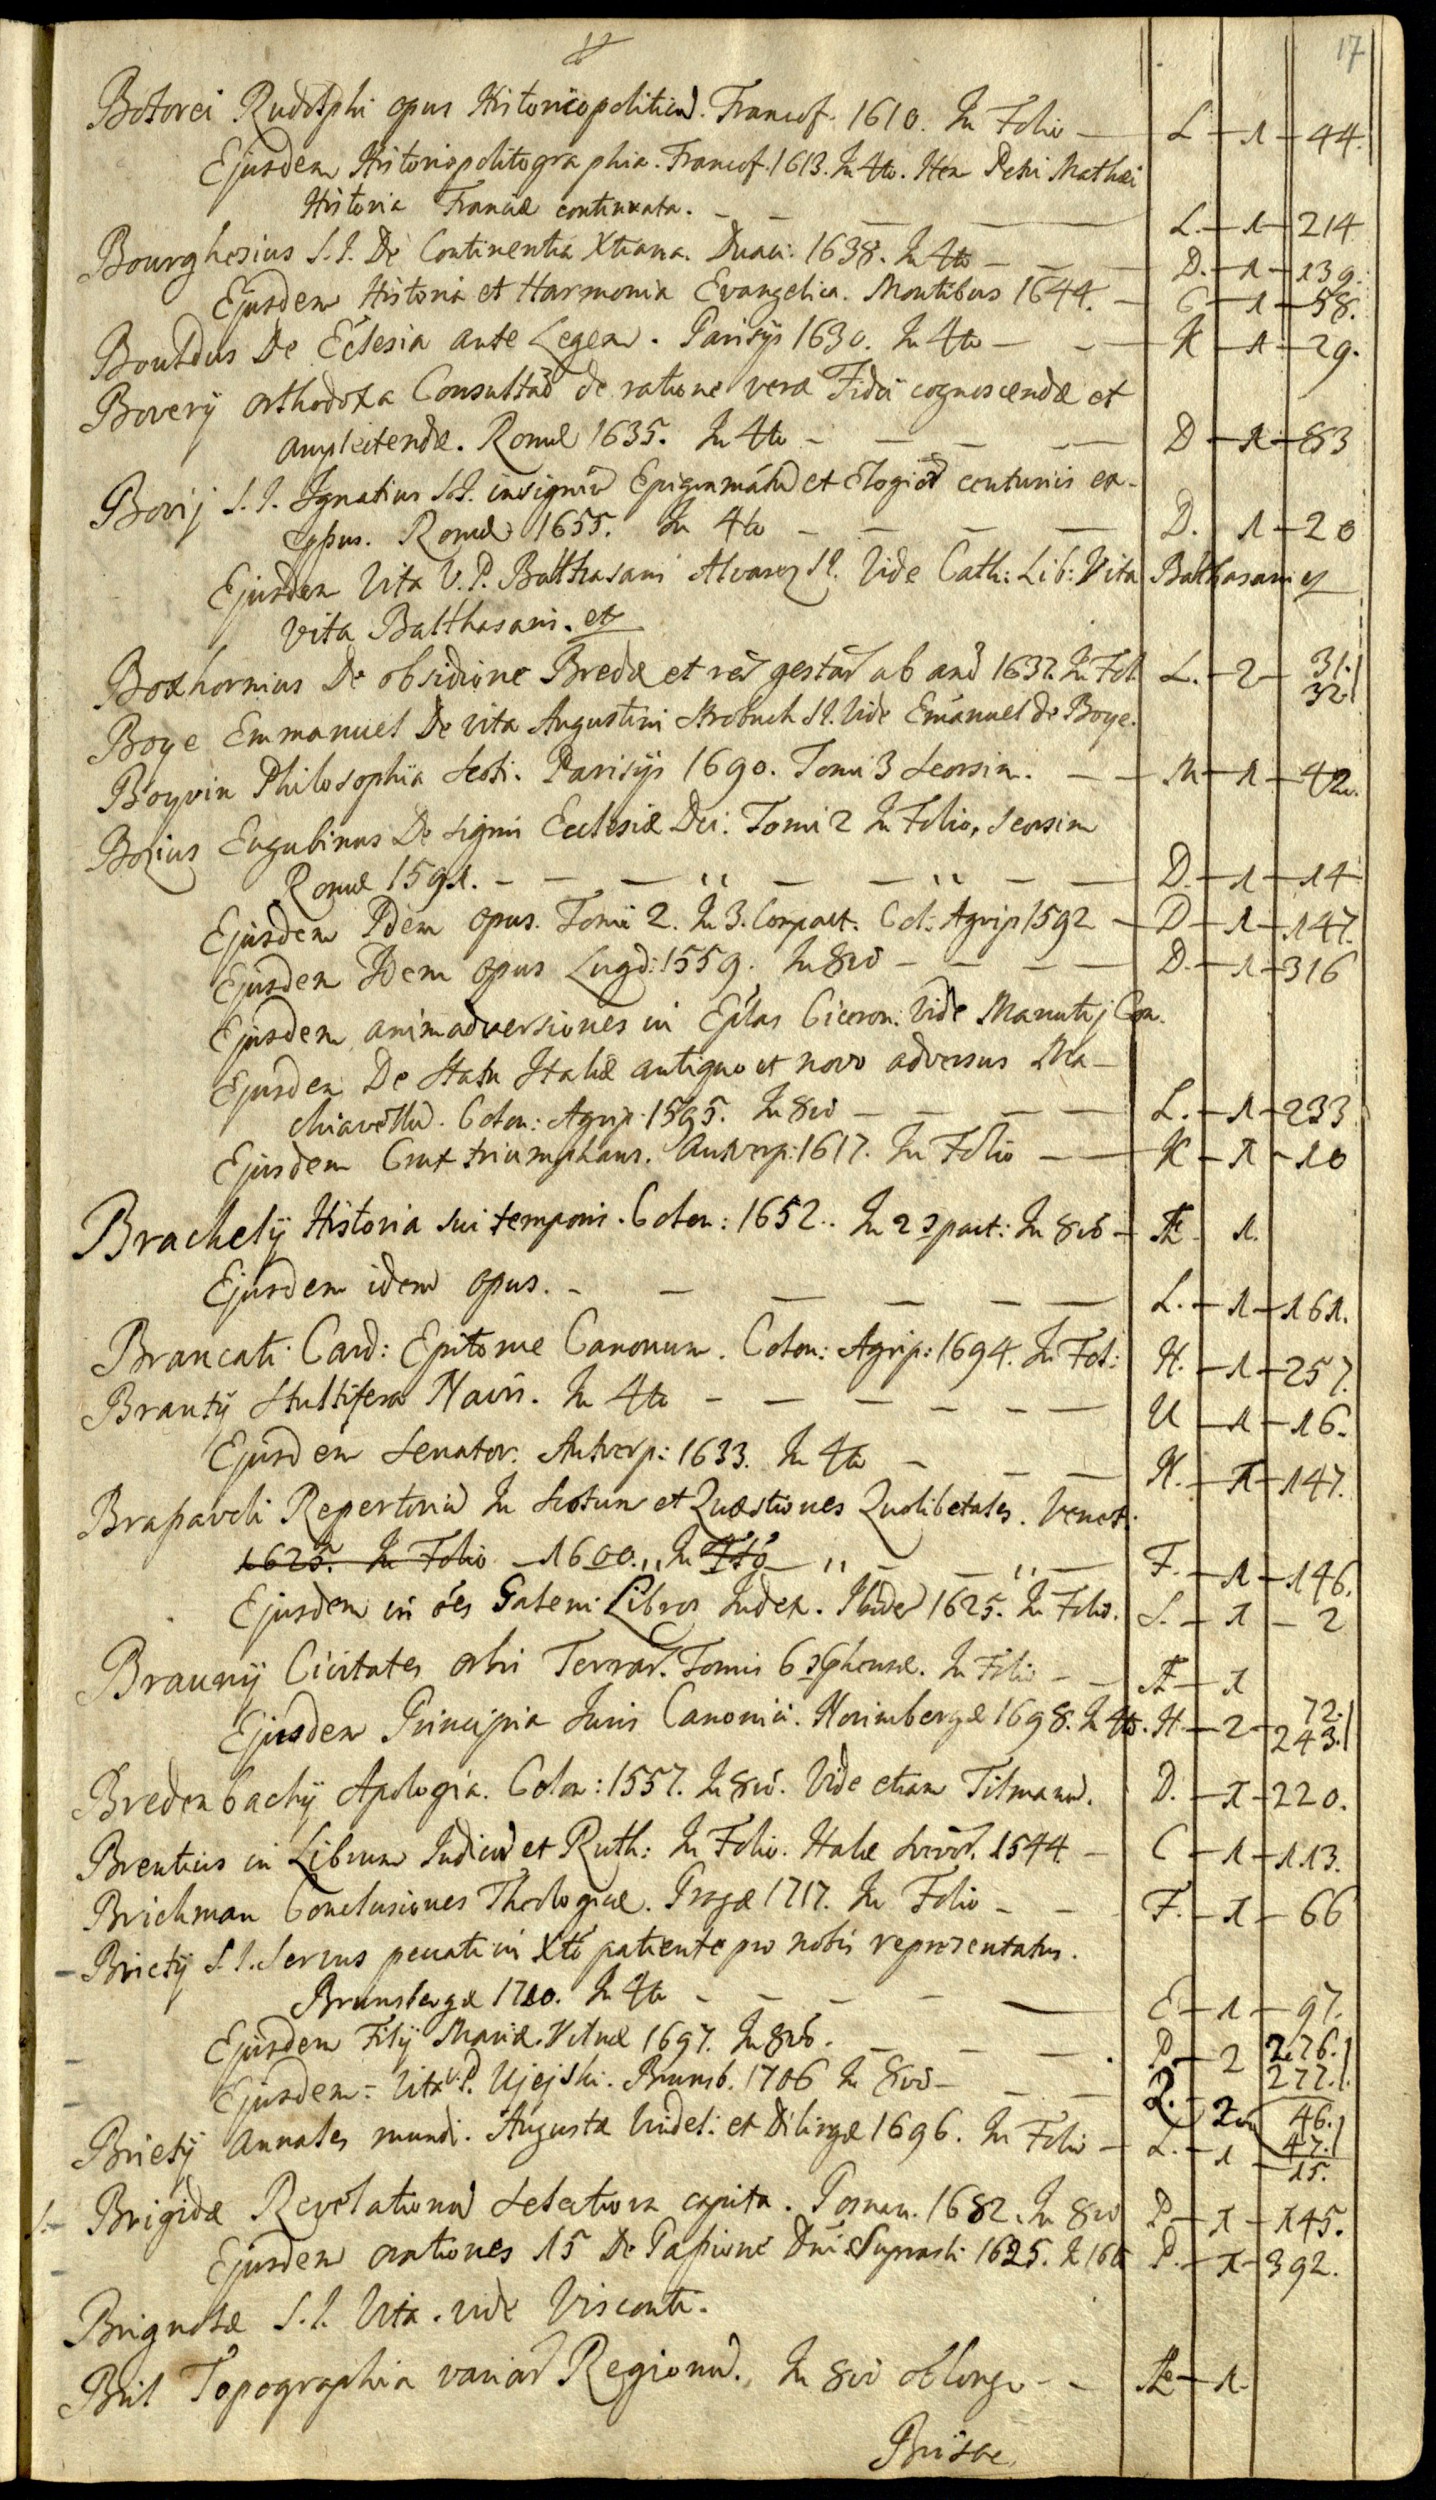 17
Botorei Rudolphi opus Historicopoliticū. Francof. 1610. In Folio — L — 1 — 44.
Ejusdem Historiopolitographia. Francof. 1613. In 4to. Item Petri Mathæi
Historia Franciæ continuata. — L. — 1 — 214
Bourghesius S.J. De Continentia Xtiana. Duaci. 1638. In 4to — D. — 1 — 139.
Ejusdem Historia et Harmonia Evangelica. Montibus 1644. — C — 1 — 58.
Bouldus De Ecclesia ante Legem. Parisijs 1630. In 4to — K — 1 — 29.
Boverij orthodoxa Consultāō de ratione vera Fidei cognoscendæ et
amplectendæ. Romæ 1635. In 4to — D — 1 — 83
Bovij S.J. Ignatius S.J. insigniū Epigrammatū et Elogiōr centurijs ex-
pssus. Romæ 1655. In 4to — D. 1 — 20
Ejusdem Vita V.P. Balthasaris Alvarez SJ. Vide Cath: Lib: Vita Balthasaris et
Vita Balthasaris. et
Boxhornius De obsidione Bredæ et rēr gestār ab anō 1637. In Fol L. — 2 — 31. 32.
Boye Emmanuel De vita Augustini Strobach SJ. Vide Emanuel de Boye.
Boyvin Philosophia Scoti. Parisijs 1690. Tomi 3 Seorsim. — M — 1 — 42.
Bozius Eugubinus De signis Ecclesiæ Dei. Tomi 2 In Folio, Seorsim
Romæ 1591. — D. — 1 — 14
Ejusdem Idem opus. Tomi 2. In 3. Compact. Col: Agrip 1592 — D — 1 — 147.
Ejusdem Idem opus Lugd: 1559. In 8vō — D. — 1 — 316
Ejusdem animadversiones in Eplas Ciceron: Vide Manutij Com.
Ejusdem De Statu Italiæ antiquo et novo adversus Ma-
chiavellū. Colon: Agrip. 1595. In 8vō — L. — 1 — 233
Ejusdem Crux triumphans. Antverp: 1617. In Folio — K — 1 — 10
Brachelij Historia sui temporis. Colon: 1652.. In 2 part: In 8vō — Æ — 1.
Ejusdem idem opus. — L. — 1 — 161.
Brancati Card: Epitome Canonum. Colon: Agrip: 1694. In Fol: H. — 1 — 257.
Brantij Stultifera Navis. In 4to — U — 1 — 16.
Ejusdem Senator. Antverp: 1633. In 4to — N. — 1 — 147.
Brasavoli Repertoriū In Scotum et Quæstiones Quolibetales. Venet:
1625. In Folio — 1600. ,, In 4to — F. — 1 — 146.
Ejusdem in oēs Galeni Libros Index. Ibidē 1625. In Folio. S. — 1 — 2
Braunij Civitates orbis Terrar. Tomis 6 In Folio — Æ — 1
Ejusdem Principia Juris Canonici. Norimbergæ 1698. In 4to. H. — 2 — 72. 243.
Bredenbachij Apologia. Colon: 1557. In 8vō. Vide etiam Tilmanū. D. — 1 — 220.
Brentius in Librum Judicū et Ruth: In Folio. Halæ 1544 — C — 1 — 113.
Brichman Conclusiones Theologicæ. Pragæ 1717. In Folio — F. — 1 — 66
Brietij S.J. Servus peccati in Xtō patiente pro nobis repræsentatus.
Brunsbergæ 1720. In 4to — E — 1 — 97.
Ejusdem Filij Mariæ. Vilnæ 1697. In 8vō. — P. — 2 276. 277.
Ejusdem Vita V.P. Ujejski. Brunsb. 1706 In 8vō — Q. — 2 46. 47.
Brietij Annales mundi. Augustæ Vindel: et Dilingæ 1696. In Folio — L. — 1 — 15.
Brigidæ Revelationū selectiora capita. Posnan. 1682. In 8vō P. — 1 — 145.
Ejusdem orationes 15 De Passione Dnī. Suprasli 1625. In 16ō P. — 1 — 392.
Brignolæ S.J. Vita. vide Visconti.
Bril Topographia variār Regionū. In 8vō oblongo — Æ — 1.
Brisae